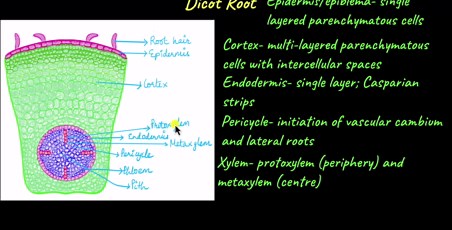 Dicot Root
Epidermis/epiblema- single
layered parenchymatous cells
Cortex- multi-layered parenchymatous
cells with intercellular spaces
Endodermis- single layer; Casparian
strips
Pericycle- initiation of vascular cambium
and lateral roots
Xylem- protoxylem (periphery) and
metaxylem (centre)
Root hair
Epidermis
Cortex
Protoxylem
Endodermis
Metaxylem
Pericycle
Phloem
Pith